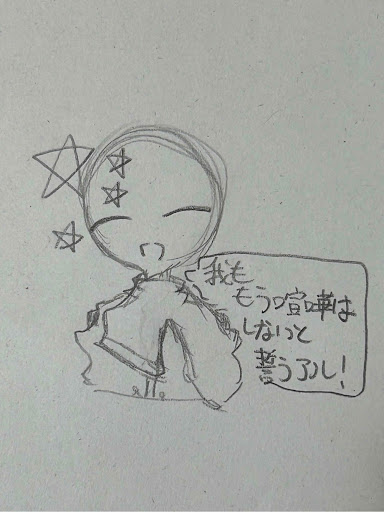 我も
もう喧嘩は
しないっと
誓うアル!